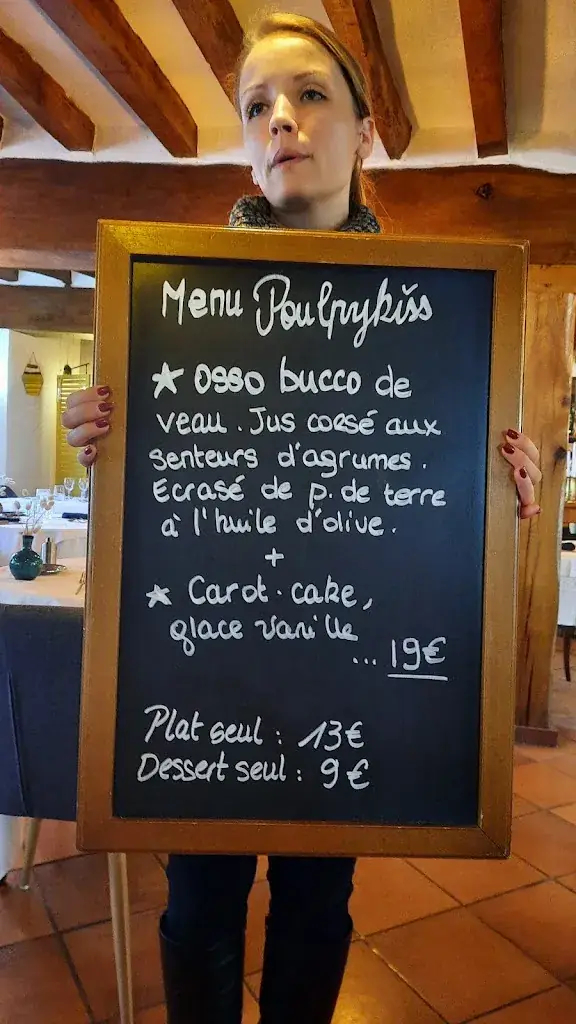 Menu Poulpykiss
★ Osso bucco de
veau. Jus corsé aux
senteurs d'agrumes.
Ecrasé de p. de terre
à l'huile d'olive.
+
★ Carot-cake,
glace vanille
... 19€
Plat seul : 13€
Dessert seul : 9€